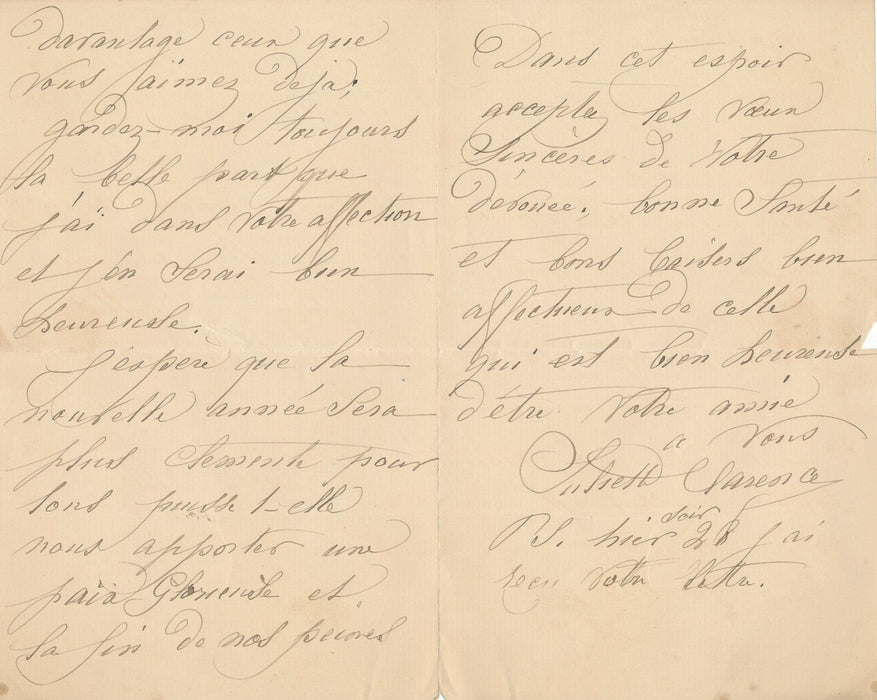 davantage ceux que
vous aimez deja;
gardez-moi toujours
la belle part que
j'ai dans votre affection
et j'en serai bien
heureuse.
J'espère que la
nouvelle année sera
plus clemente pour
tous puisse t-elle
nous apporter une
paix Glorieuse et
la fin de nos peines
Dans cet espoir
acceptez les vœux
Sincères de votre
dévouée; bonne Santé
et bons baisers bien
affectueux de celle
qui est bien heureuse
d'être votre amie
a vous
Juliette Clarence
P.S. hier soir 28 j'ai
reçu votre lettre.